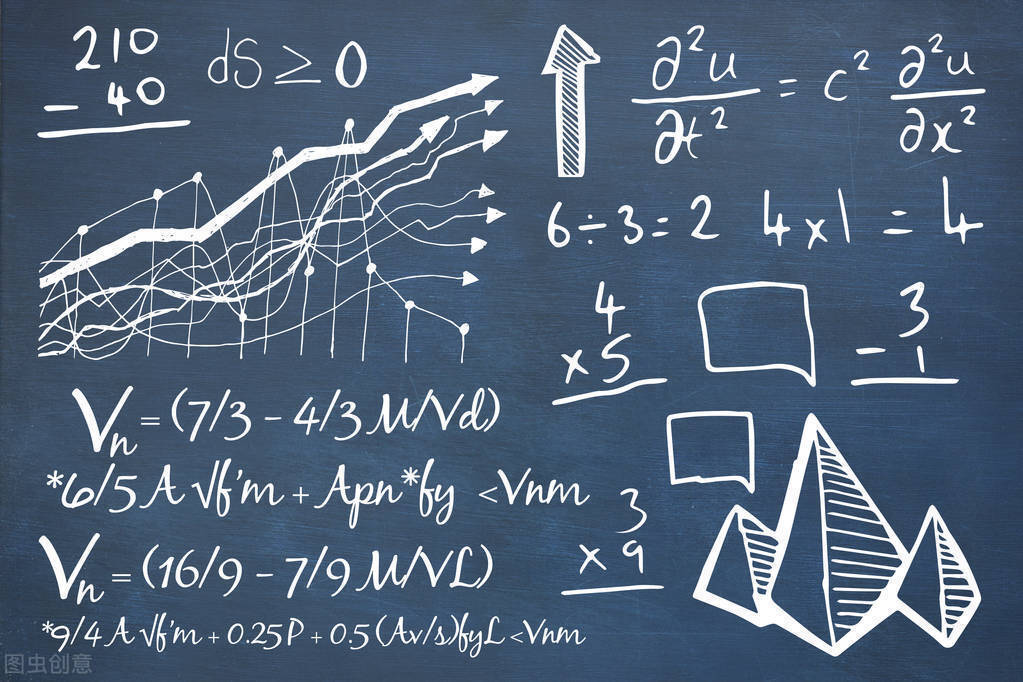 210
- 40
dS ≥ 0
∂²u/∂t² = c² ∂²u/∂x²
6÷3=2
4x1=4
4
x5
3
-1
Vn = (7/3 - 4/3 M/Vd)
*6/5 A √f'm + Apn*fy <Vnm
3
x 9
Vn = (16/9 - 7/9 M/VL)
*9/4 A √f'm + 0.25P + 0.5 (Av/s)fyL <Vnm
图虫创意